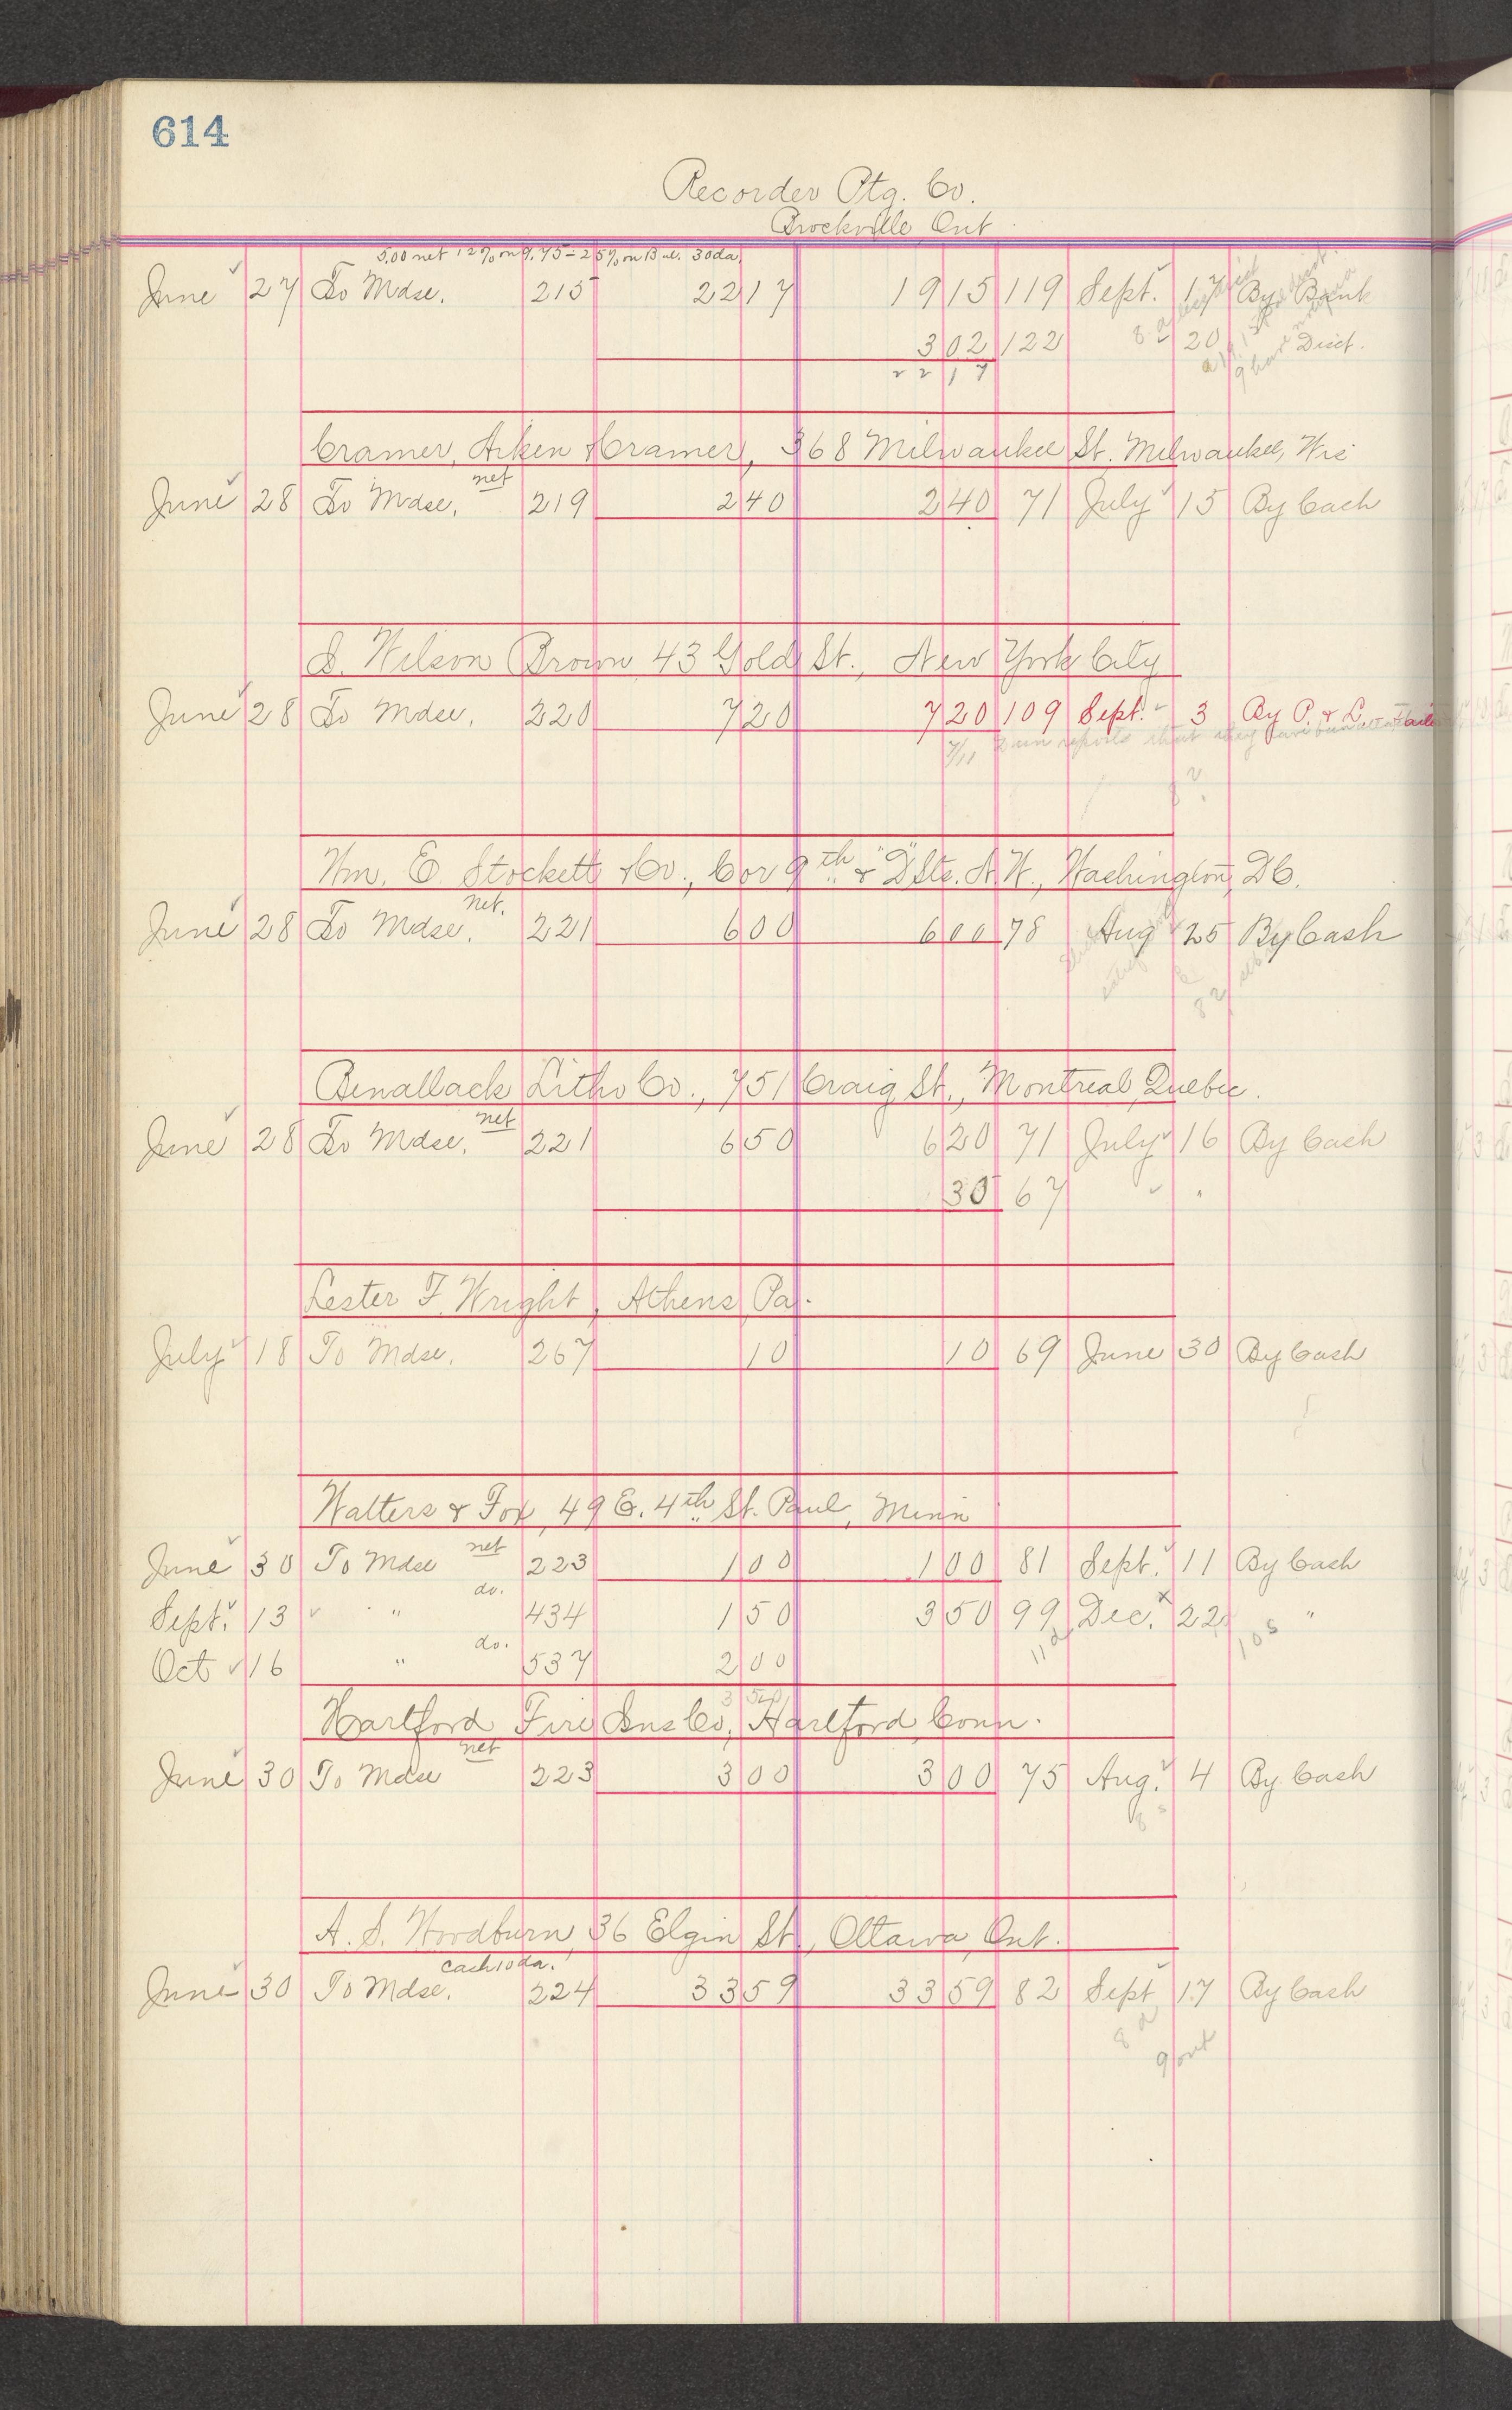 614
Recorder Ptg. Co.
Brockville Ont
5.00 net 12% on 9.75 - 25% on Bal. 30 da.
June 27 To Mdse. 215 22 17 19 15 119 Sept. 17 By Bank
3 02 122 20 Disct.
22 17
Cramer, Aiken & Cramer, 368 Milwaukee St. Milwaukee, Wis
net
June 28 To Mdse. 219 2 40 2 40 71 July 15 By Cash
S. Wilson Brown 43 Gold St., New York City
June 28 To Mdse. 220 7 20 7 20 109 Sept. 3 By P. & L.
7/11 Dun reports that they
Wm. E. Stockett & Co., Cor 9th & "D" Sts. N.W., Washington, DC.
net.
June 28 To Mdse. 221 6 00 6 00 78 Aug 25 By Cash
Benallack Litho Co., 751 Craig St., Montreal, Quebec.
net
June 28 To Mdse. 221 6 50 6 20 71 July 16 By Cash
30 67 " "
Lester F. Wright, Athens, Pa.
July 18 To Mdse. 267 10 10 69 June 30 By Cash
Walters & Fox, 49 E. 4th St. Paul, Minn
net
June 30 To Mdse 223 1 00 1 00 81 Sept. 11 By Cash
do.
Sept. 13 " " 434 1 50 3 50 99 Dec. 22 "
do.
Oct 16 " 537 2 00
3 50
Hartford Fire Ins Co, Hartford, Conn.
net
June 30 To Mdse 223 3 00 3 00 75 Aug. 4 By Cash
A. S. Woodburn, 36 Elgin St., Ottawa, Ont.
Cash 10 da.
June 30 To Mdse. 224 33 59 33 59 82 Sept 17 By Cash